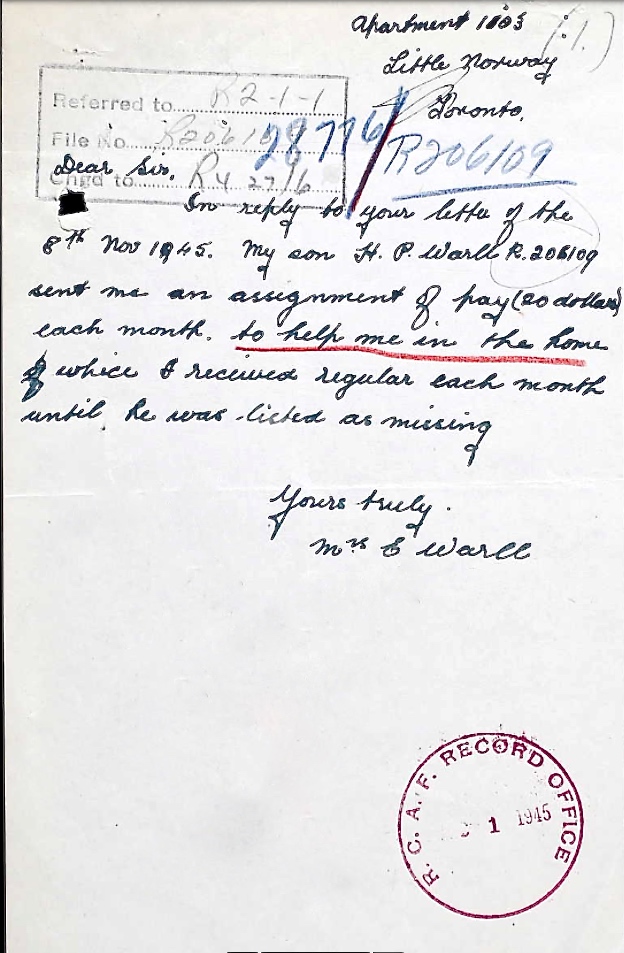 Apartment 1803 (1.)
Little Norway
Toronto.
Referred to R2-1-1
File No. R206109
28776 / R206109
Dear Sir.
Chgd to R4 27/6
In reply to your letter of the
8th Nov 1945. My son H. P. Warll R.206109
sent me an assignment of pay (20 dollars)
each month. to help me in the home
of whice I received regular each month
until he was listed as missing
Yours truly.
Mrs E Warll
R. C. A. F. RECORD OFFICE
1 1945